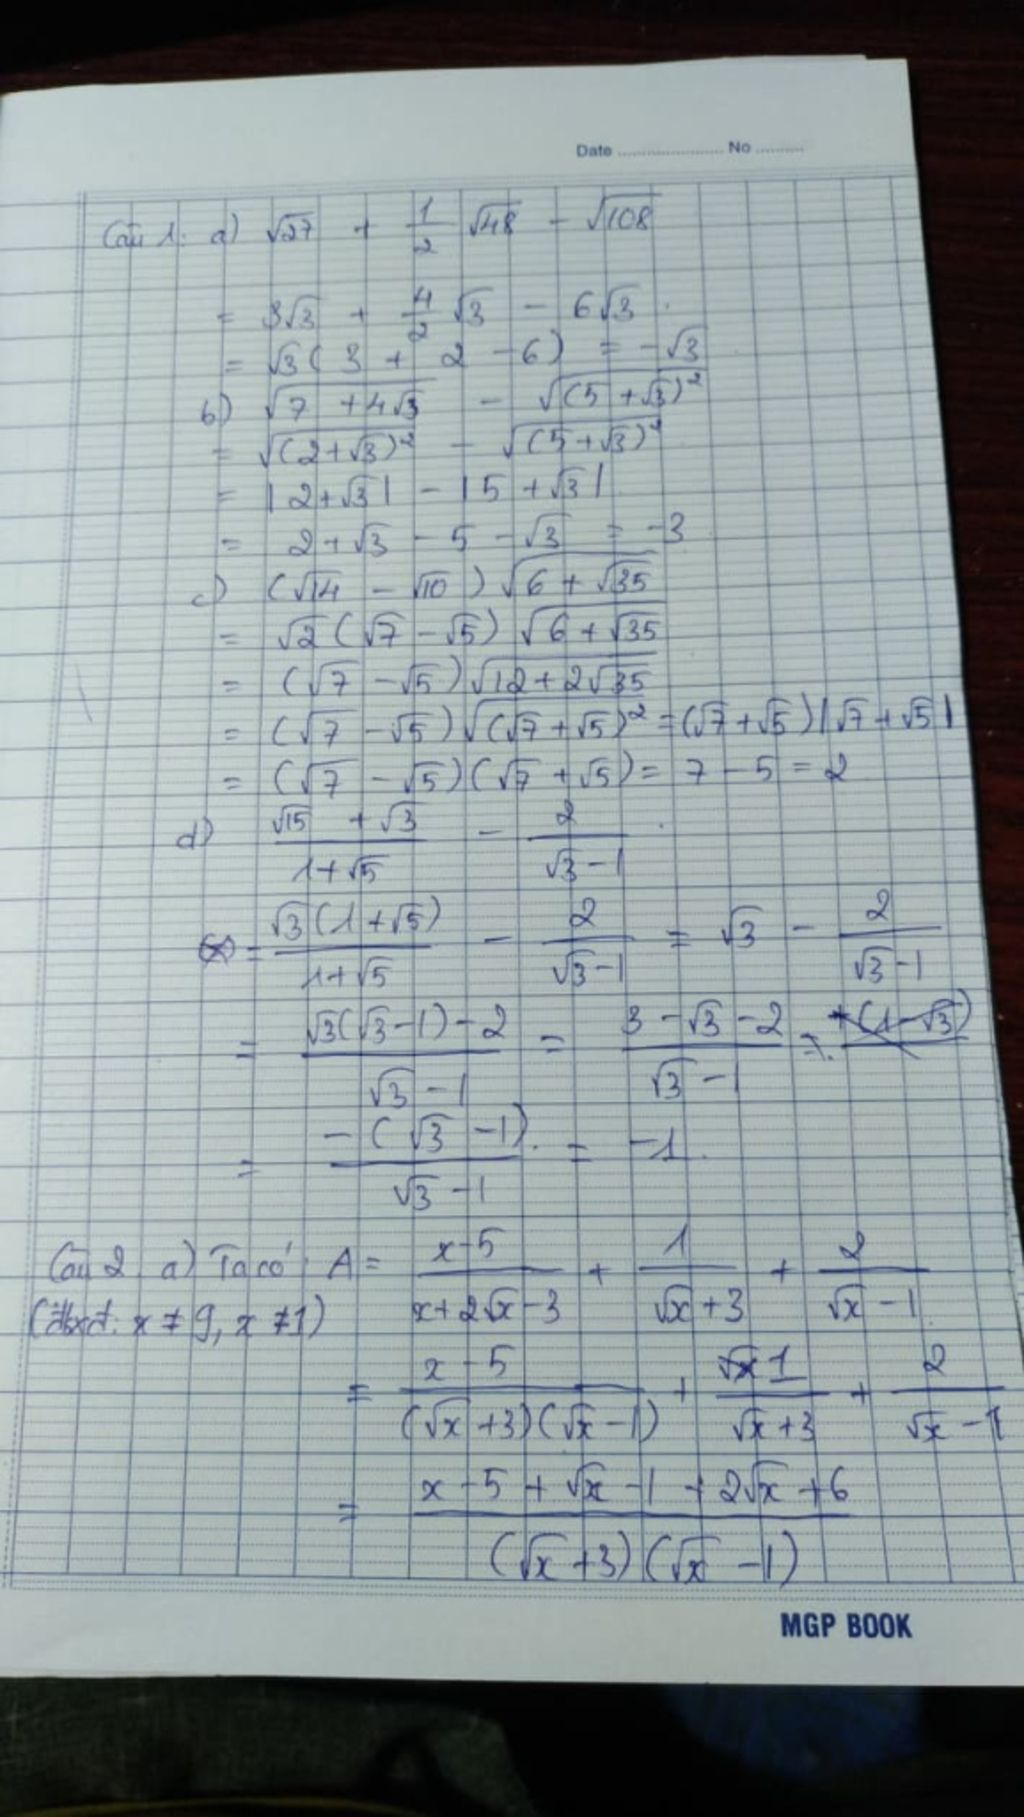 Date ........................ No ..........
Câu 1: a) √27 + 1/2 √48 - √108
= 3√3 + 4/2 √3 - 6√3
= √3 ( 3 + 2 - 6) = -√3
b) √(7 + 4√3) - √((5 + √3)²)
= √((2+√3)²) - √((5+√3)²)
= |2+√3| - |5+√3|
= 2+√3 - 5 - √3 = -3
c) (√14 - √10) √(6 + √35)
= √2 (√7 - √5) √(6 + √35)
= (√7 - √5) √(12 + 2√35)
= (√7 - √5) √((√7 + √5)²) = (√7 + √5) |√7 + √5|
= (√7 - √5)(√7 + √5) = 7 - 5 = 2
d) (√15 + √3)/(1+√5) - 2/(√3-1)
= √3(1+√5)/(1+√5) - 2/(√3-1) = √3 - 2/(√3-1)
= (√3(√3-1)-2)/(√3-1) = (3-√3-2)/(√3-1) =
= -(√3-1)/(√3-1) = -1
Câu 2 a) Ta có: A = (x-5)/(x+2√x-3) + 1/(√x+3) + 2/(√x-1)
(đkxđ: x ≠ 9, x ≠ 1)
= (x-5)/((√x+3)(√x-1)) + 1/(√x+3) + 2/(√x-1)
= (x-5+√x-1+2√x+6)/((√x+3)(√x-1))
MGP BOOK